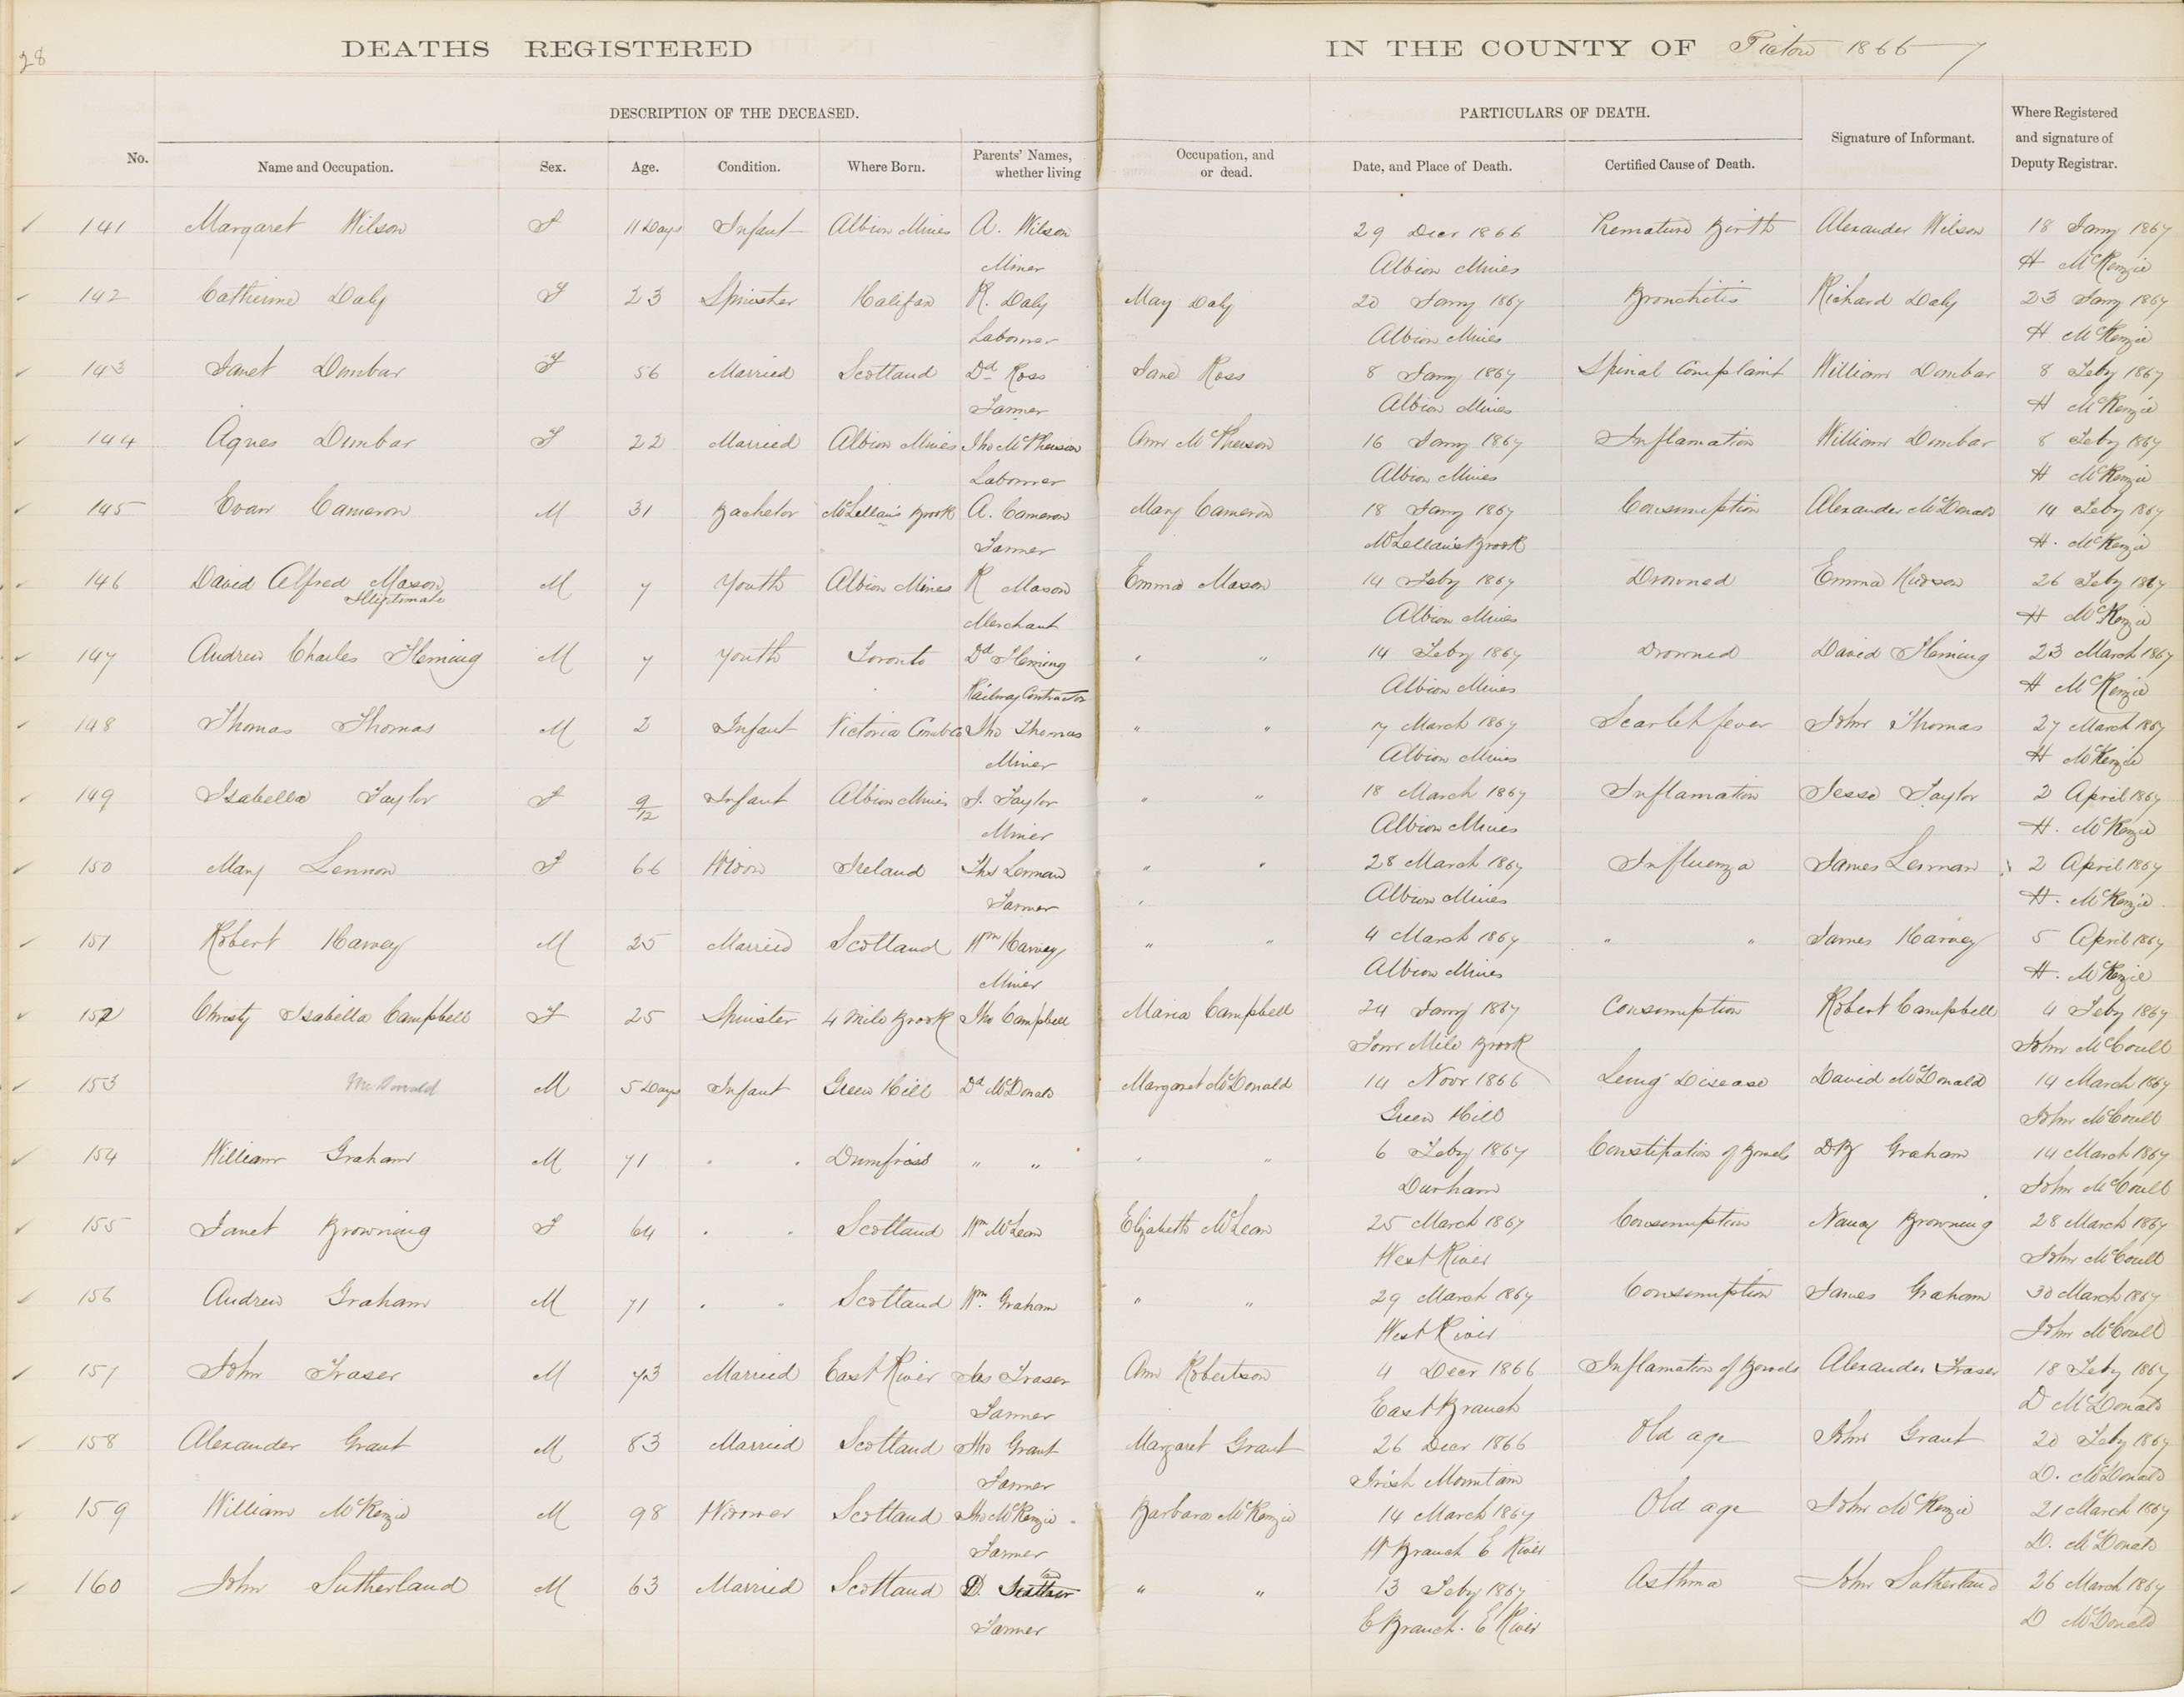 28
DEATHS REGISTERED IN THE COUNTY OF Pictou 1866-7
DESCRIPTION OF THE DECEASED. PARTICULARS OF DEATH.
No. Name and Occupation. Sex. Age. Condition. Where Born. Parents' Names, whether living Occupation, and or dead. Date, and Place of Death. Certified Cause of Death. Signature of Informant. Where Registered and signature of Deputy Registrar.
141 Margaret Wilson F 11 Days Infant Albion Mines A. Wilson 29 Decr 1866 Premature Birth Alexander Wilson 18 Jany 1867
Miner Albion Mines H McKenzie
142 Catherine Daly F 23 Spinster Halifax R. Daly Mary Daly 20 Jany 1867 Bronchitis Richard Daly 23 Jany 1867
Laborer Albion Mines H McKenzie
143 Janet Dunbar F 56 Married Scotland Dd Ross Jane Ross 8 Jany 1867 Spinal Complaint William Dunbar 8 Feby 1867
Farmer Albion Mines H McKenzie
144 Agnes Dunbar F 22 Married Albion Mines Jno McPherson Ann McPherson 16 Jany 1867 Inflamation William Dunbar 8 Feby 1867
Laborer Albion Mines H McKenzie
145 Evan Cameron M 31 Bachelor McLellan's Brook A. Cameron Mary Cameron 18 Jany 1867 Consumption Alexander McDonald 14 Feby 1867
Farmer McLellan's Brook H. McKenzie
146 David Alfred Mason M 7 Youth Albion Mines R Mason Emma Mason 14 Feby 1867 Drowned Emma Hudson 26 Feby 1867
Illigtimate Merchant Albion Mines H McKenzie
147 Andrew Charles Fleming M 7 Youth Toronto Dd Fleming " " 14 Feby 1867 Drowned David Fleming 23 March 1867
Railway Contractor Albion Mines H McKenzie
148 Thomas Thomas M 2 Infant Victoria Jno Thomas " " 7 March 1867 Scarlet fever John Thomas 27 March 1867
Miner Albion Mines H McKenzie
149 Isabella Taylor F 9/12 Infant Albion Mines J. Taylor " " 18 March 1867 Inflamation Jesse Taylor 2 April 1867
Miner Albion Mines H. McKenzie
150 Mary Lennon F 66 Widow Ireland Ths Lennan " " 28 March 1867 Influenza James Lennan 2 April 1867
Farmer Albion Mines H. McKenzie
151 Robert Harvey M 25 Married Scotland Wm Harvey " " 4 March 1867 " " James Harvey 5 April 1867
Miner Albion Mines H. McKenzie
152 Christy Isabella Campbell F 25 Spinster 4 Mile Brook Jno Campbell Maria Campbell 24 Jany 1867 Consumption Robert Campbell 4 Feby 1867
Four Mile Brook John McCoull
153 McDonald M 5 Days Infant Green Hill Dd McDonald Margaret McDonald 14 Novr 1866 Lung Disease David McDonald 14 March 1867
Green Hill John McCoull
154 William Graham M 71 " " Dumfries " " " " 6 Feby 1867 Constipation of Bowels D B Graham 14 March 1867
Durham John McCoull
155 Janet Browning F 64 " " Scotland Wm McLean Elizabeth McLean 25 March 1867 Consumption Nancy Browning 28 March 1867
West River John McCoull
156 Andrew Graham M 71 " " Scotland Wm. Graham " " 29 March 1867 Consumption James Graham 30 March 1867
West River John McCoull
157 John Fraser M 73 Married East River Jas Fraser Ann Robertson 4 Decr 1866 Inflamation of Bowels Alexander Fraser 18 Feby 1867
Farmer East Branch D McDonald
158 Alexander Grant M 83 Married Scotland Jno Grant Margaret Grant 26 Decr 1866 Old age John Grant 20 Feby 1867
Farmer Irish Mountain D. McDonald
159 William McKenzie M 98 Widower Scotland Jno McKenzie Barbara McKenzie 14 March 1867 Old age John McKenzie 21 March 1867
Farmer W Branch E River D. McDonald
160 John Sutherland M 63 Married Scotland D. " " 13 Feby 1867 Asthma John Sutherland 26 March 1867
Farmer E Branch. E River D McDonald